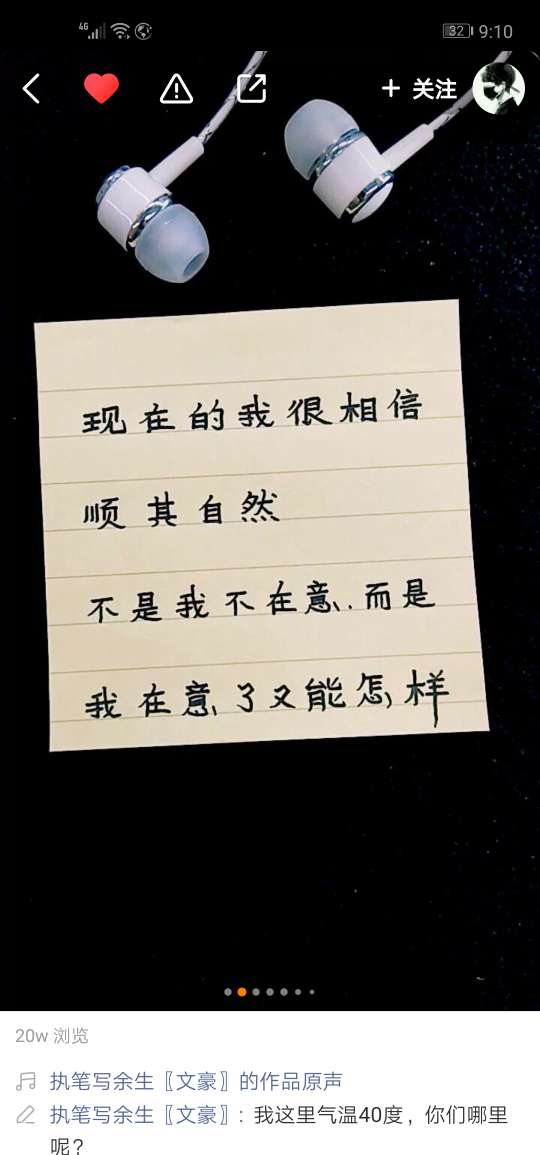 4G 32 9:10
+ 关注
现在的我很相信
顺其自然
不是我不在意.而是
我在意了又能怎样
20w 浏览
执笔写余生〖文豪〗的作品原声
执笔写余生〖文豪〗: 我这里气温40度，你们哪里
呢?